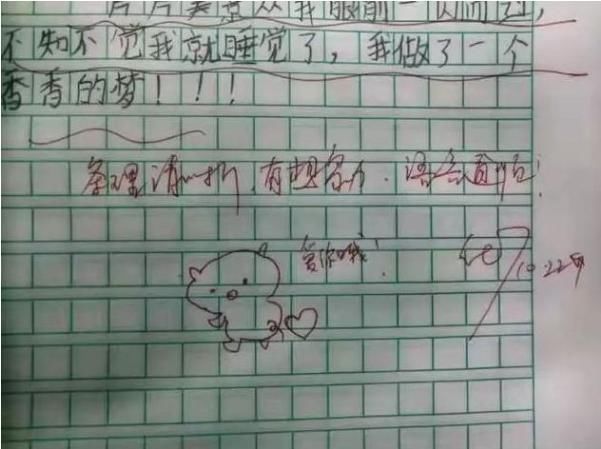 片片美景从我眼前一闪而过，
不知不觉我就睡觉了，我做了一个
香香的梦！！！
条理清晰，有想象力，语言通顺！
爱你哦！
10.22日